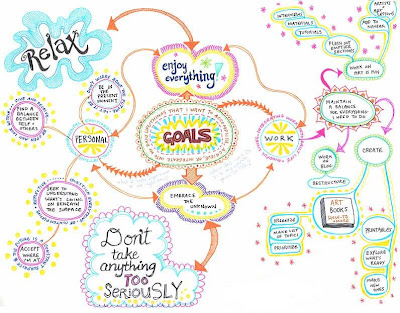 Relax
enjoy
everything!
BE IN
THE PRESENT
MOMENT
FIND A
BALANCE
BETWEEN
SELF +
OTHERS
PERSONAL
THAT I WANT
GOALS
WORK
SEEK TO
UNDERSTAND
WHAT'S GOING
ON BENEATH
THE SURFACE
ACCEPT
WHERE
I'M AT
EMBRACE
THE
UNKNOWN
Don't
take
anything
TOO
SERIOUSLY
INTERVIEWS
MATERIALS
TUTORIALS
FLESH OUT
ARTISTS
ADD TO
WORK ON
ART IS FUN
MAINTAIN
A BALANCE
FOR EVERYTHING
I NEED TO DO
WORK
ON BLOG
RESTRUCTURE
CREATE
ART
BOOKS
ORGANIZE
MAKE LIST
OF TOPICS
PRIORITIZE
PRINTABLES
EXPLORE
WHAT'S
READY
MAKE
NEW ONES